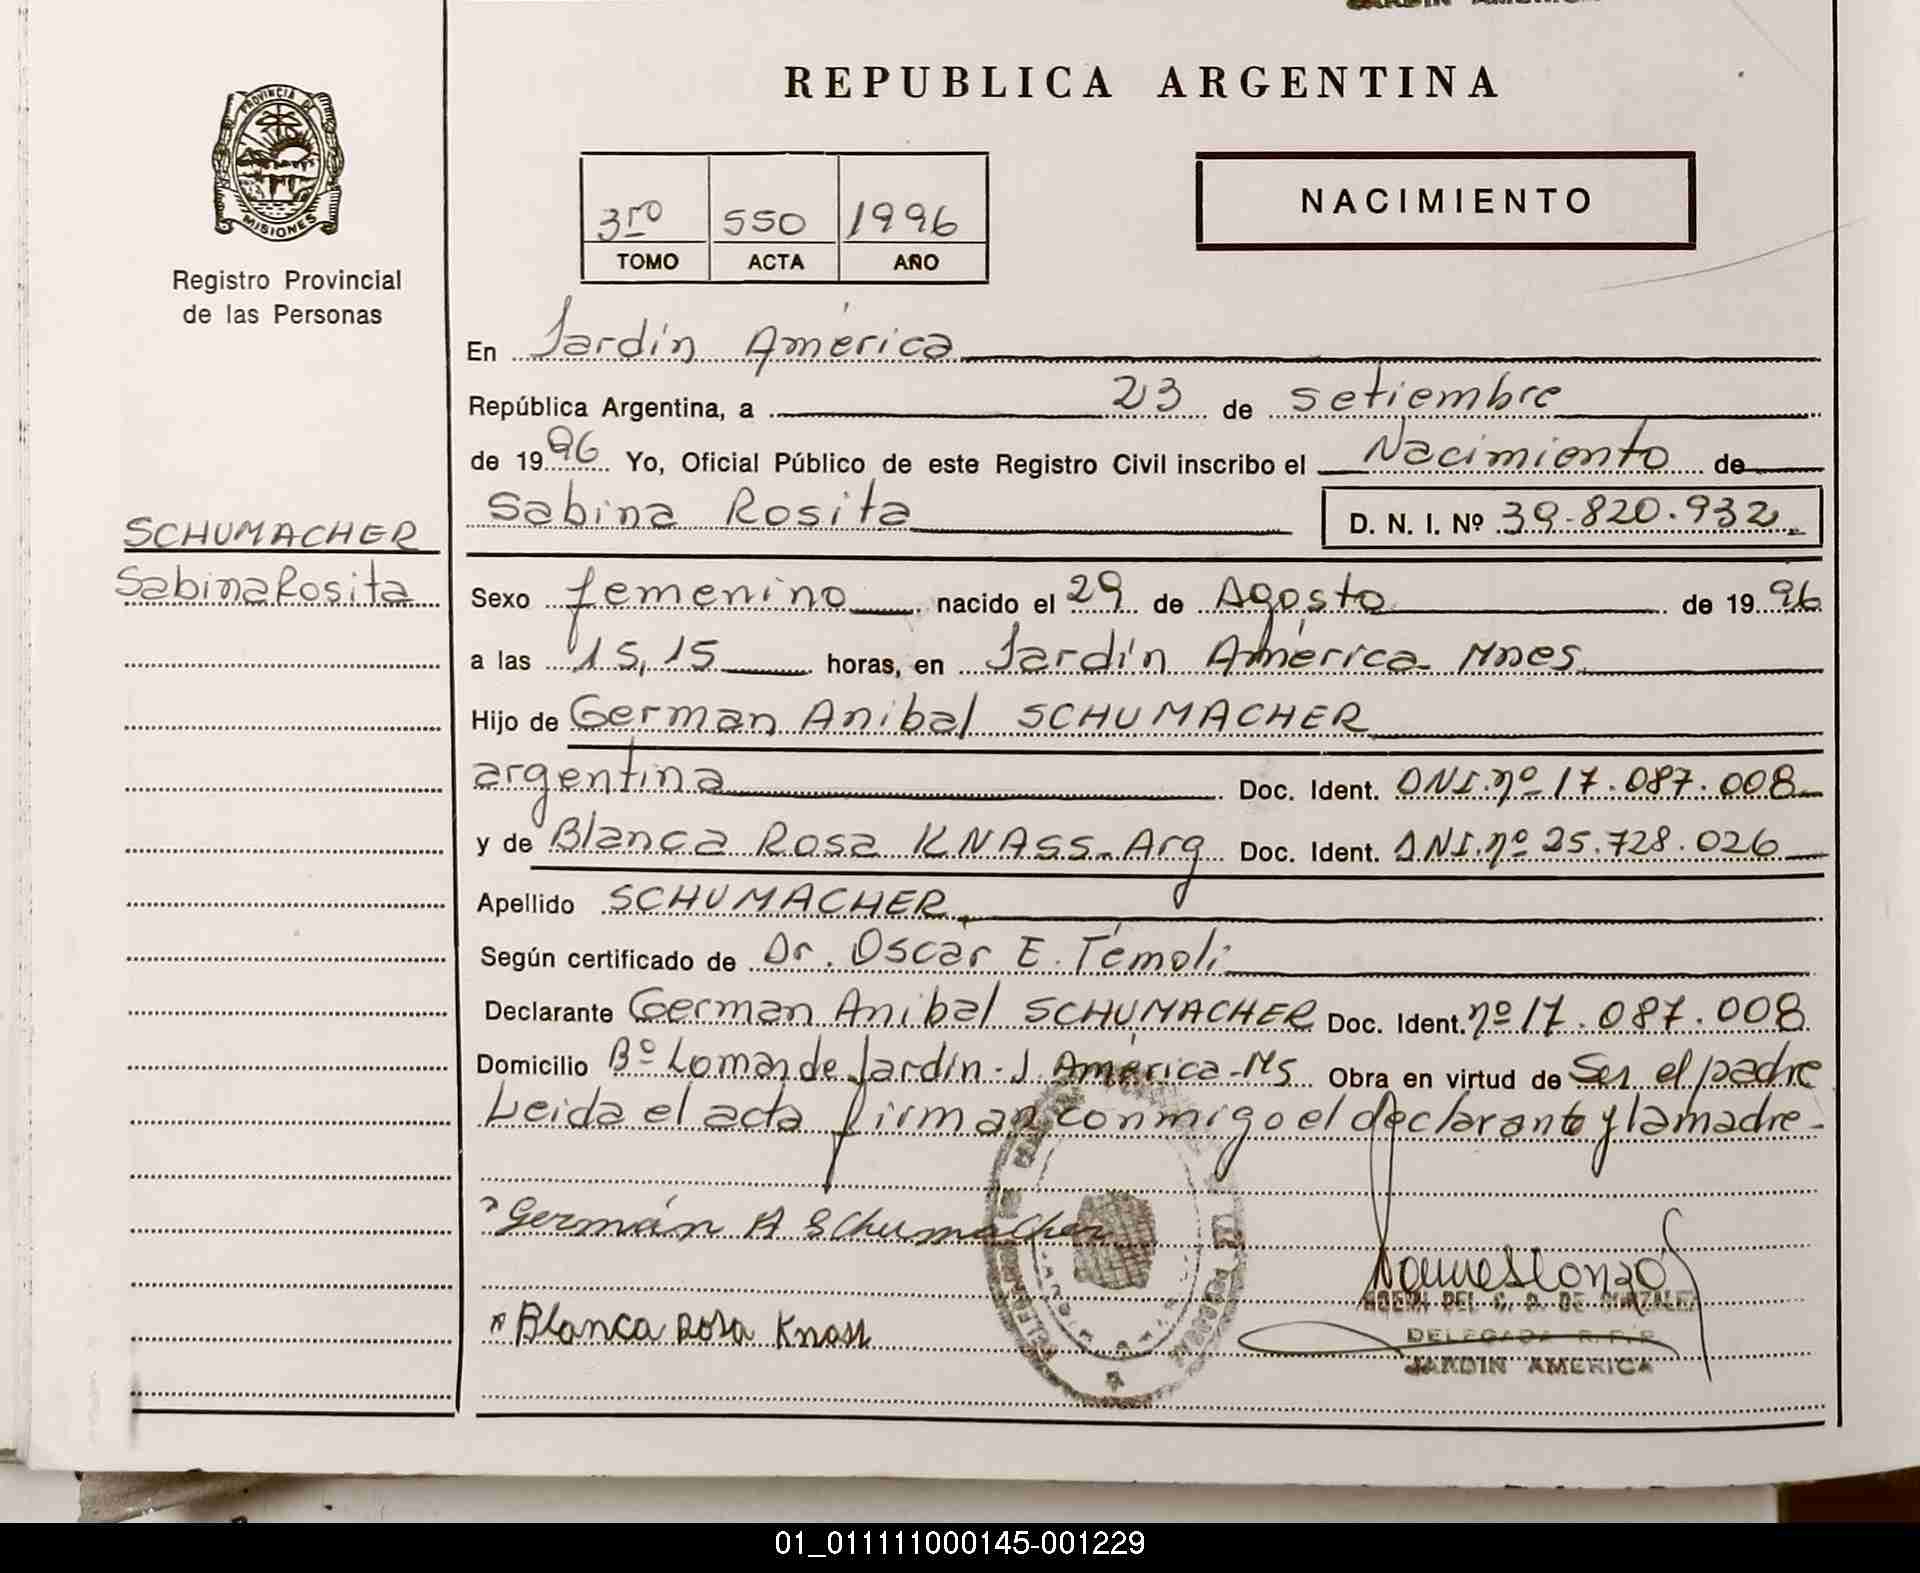 JARDIN AMERICA
REPUBLICA ARGENTINA
PROVINCIA DE
MISIONES
Registro Provincial
de las Personas
3ro 550 1996
TOMO ACTA AÑO
NACIMIENTO
En Jardín América
República Argentina, a 23 de setiembre
de 1996 Yo, Oficial Público de este Registro Civil inscribo el Nacimiento de
Sabina Rosita D. N. I. Nº 39.820.932
SCHUMACHER
Sabina Rosita
Sexo femenino nacido el 29 de Agosto de 1996
a las 15,15 horas, en Jardín América - Mnes
Hijo de German Anibal SCHUMACHER
argentina Doc. Ident. DNI.nº 17.087.008
y de Blanca Rosa KNASS - Arg Doc. Ident. DNI.nº 25.728.026
Apellido SCHUMACHER
Según certificado de Dr. Oscar E. Témoli
Declarante German Anibal SCHUMACHER Doc. Ident. nº 17.087.008
Domicilio Bº Lomas de Jardín - J. América - Ms Obra en virtud de Ser el padre
Leida el acta firman conmigo el declarante y la madre -
Germán A Schumacher
Blanca Rosa Knass
DEL C. D. DE GONZALEZ
DELEGADA R.P.P.
JARDIN AMERICA
01_011111000145-001229